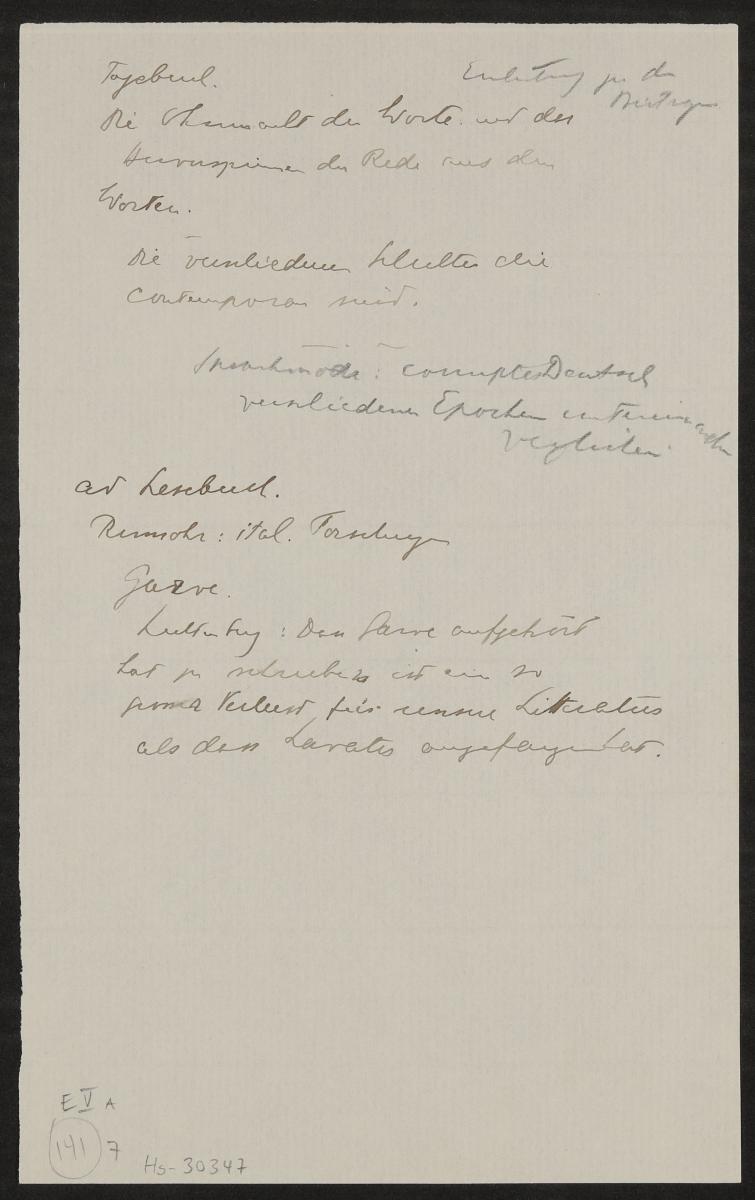 Tagebuch.
Einleitung zu den
Beiträgen
Die Ohnmacht der Worte. und das
Herausspinnen der Rede aus den
Worten.
Die verschiedenen Schichten die
contemporan sind.
Sprachmode: corruptes Deutsch
verschiedener Epochen untereinander
verglichen
ad Lesebuch.
Rumohr: ital. Forschungen
Garve.
Lichtenberg: Dass Garve aufgehört
hat zu schreiben ist ein so
grosser Verlust für unsere Litteratur
als dass Lavater angefangen hat.
E V A
141 7
Hs-30347